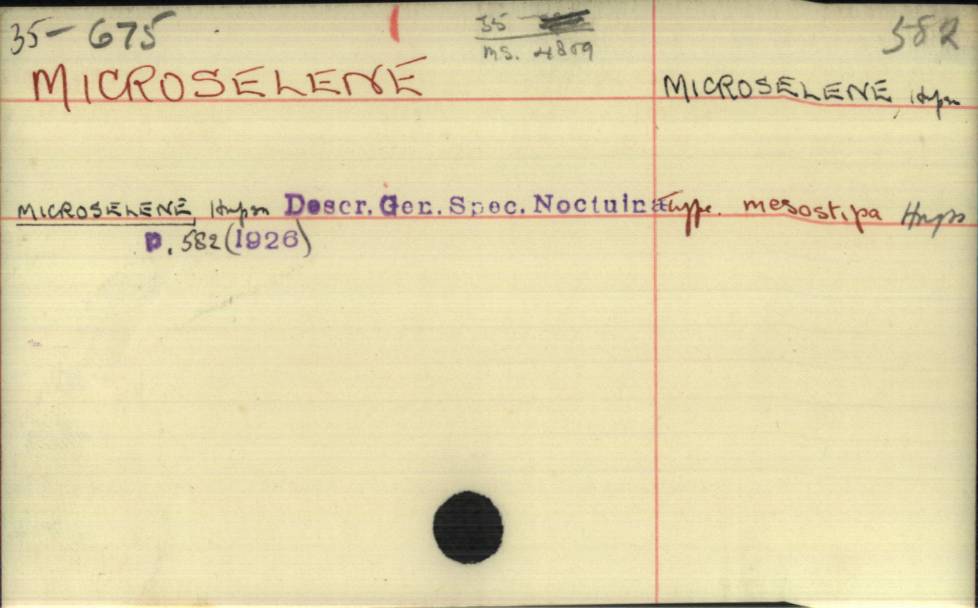 35-675
35-
MS. 4809
582
MICROSELENE
MICROSELENE, Hmpsn
MICROSELENE, Hmpsn Descr. Gen. Spec. Noctuinae Type. mesostipa Hmpsn
p. 582 (1926)